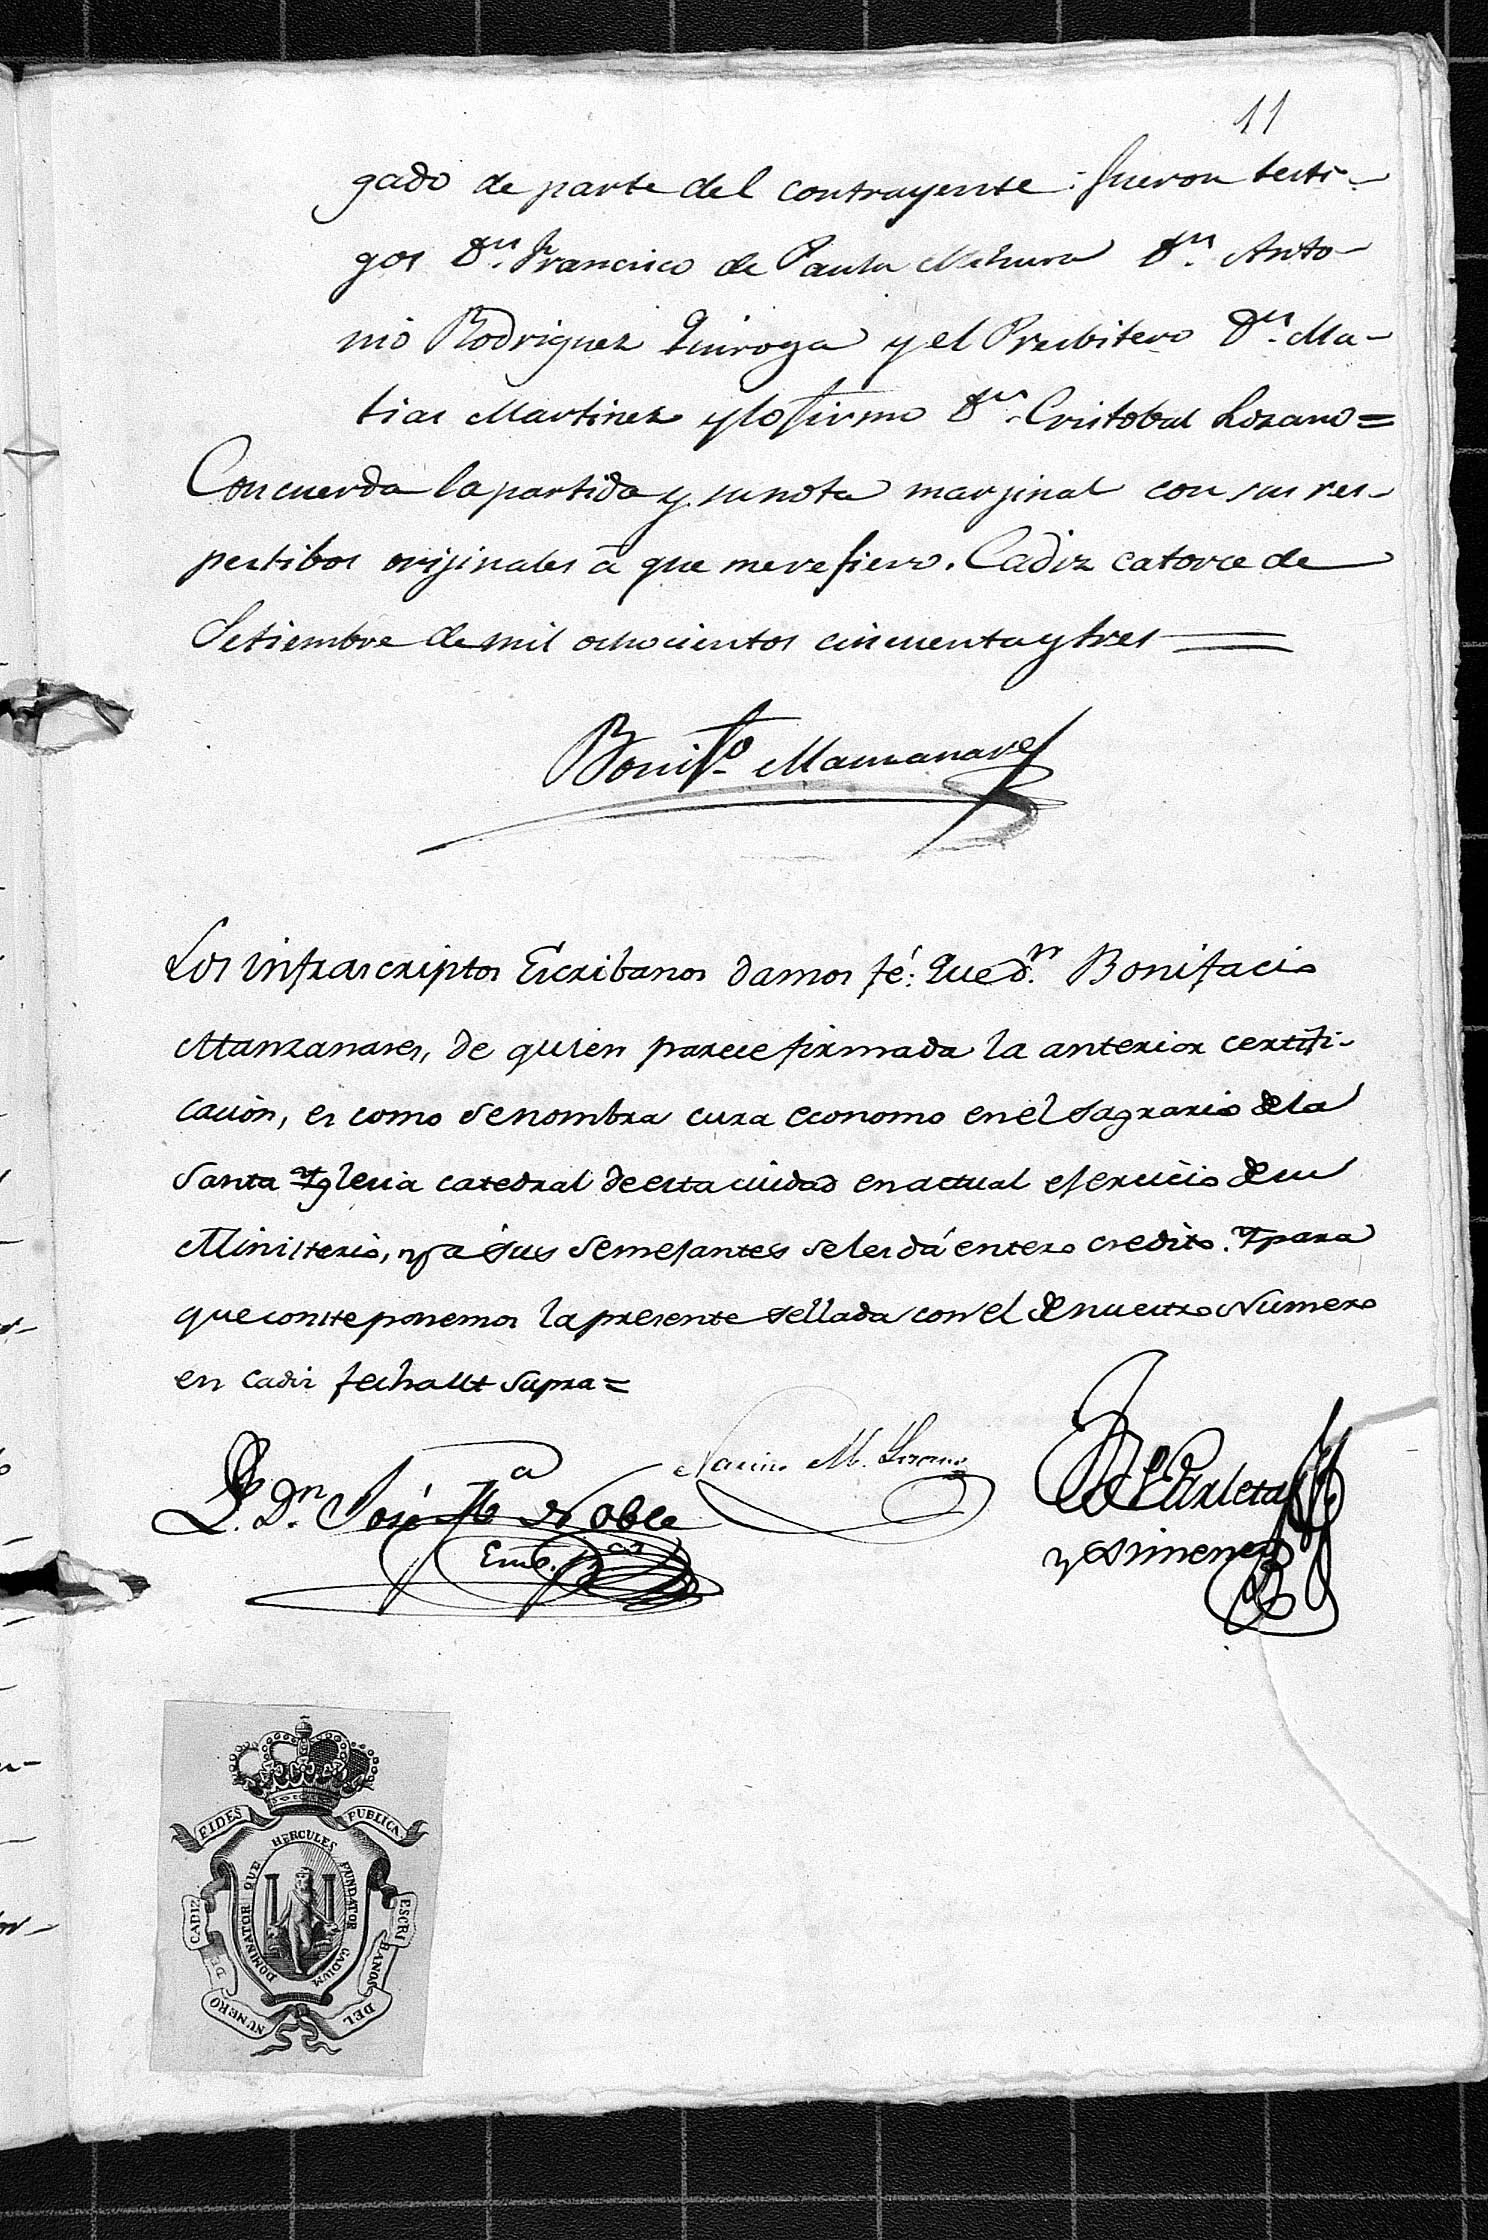 11
gado de parte del contrayente: fueron testi-
gos Dn. Francisco de Paula Dn. Anto-
nio Rodriguez Quiroga y el Presbitero Dn. Ma-
tias Martinez y lo firmo Dn. Cristobal Lozano=
Concuerda la partida y su nota marjinal con sus res-
pectibos orijinales á que me refiero. Cadiz catorce de
Setiembre de mil ochocientos cincuenta y tres
Bonifo. Manzanares
Los infrascriptos Escribanos damos fé: Que dn. Bonifacio
Manzanares, de quien parece firmada la anterior certifi-
cacion, es como se nombra cura economo en el Sagrario de la
Santa Yglesia catedral de esta ciudad en actual ejercicio de su
Ministerio, y á sus semejantes se les dá entero credito. Y para
que conste ponemos la presente sellada con el de nuestro Numero
en Cadiz fecha ut supra=
L. Dn. José Ma Noble
M. Lozano
y Ximenez
FIDES PUBLICA
DOMINATOR QUE HERCULES FUNDATOR GADIUM
ESCRIBANOS DEL NUMERO DE CADIZ